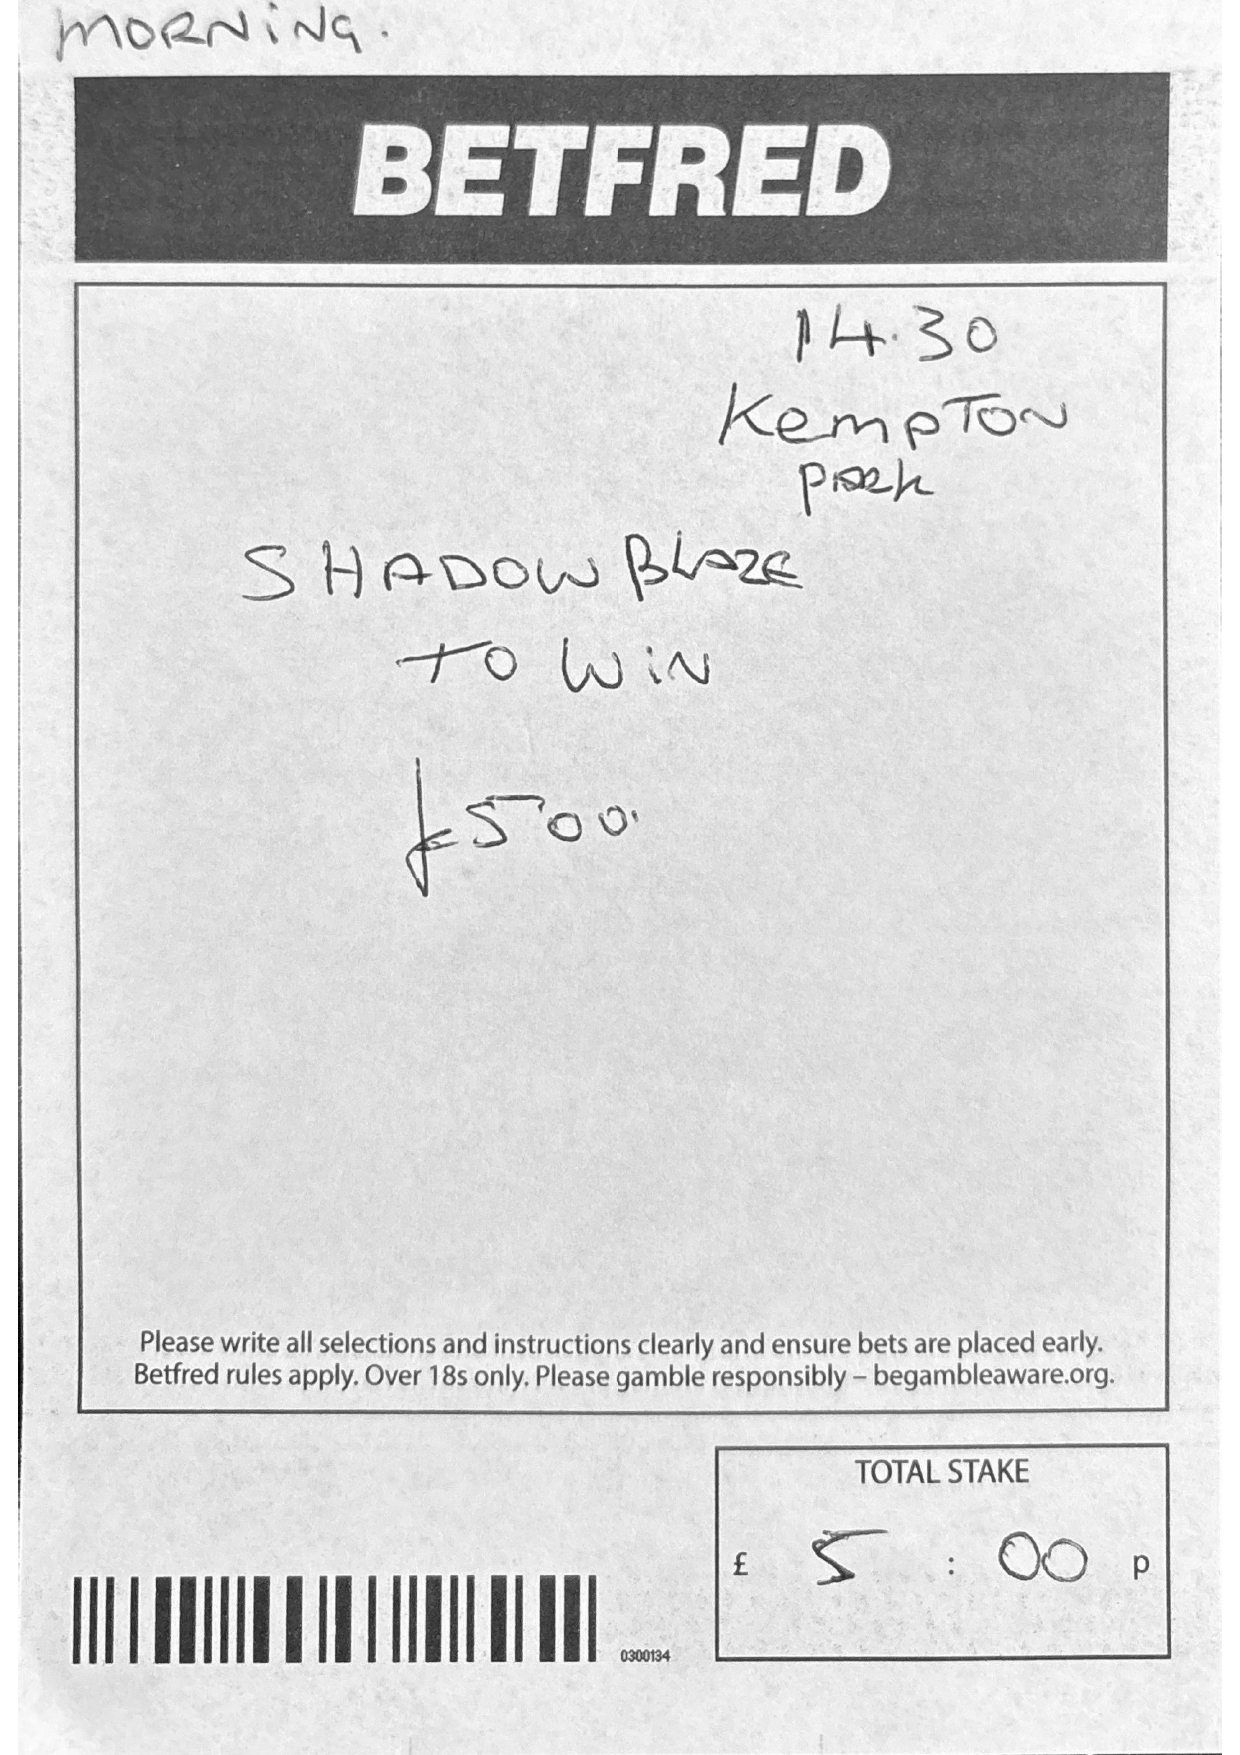 MORNING.
BETFRED
14.30
Kempton
park
SHADOW BLAZE
TO WIN
£500.
Please write all selections and instructions clearly and ensure bets are placed early.
Betfred rules apply. Over 18s only. Please gamble responsibly – begambleaware.org.
TOTAL STAKE
£ 5 : 00 p
0300134